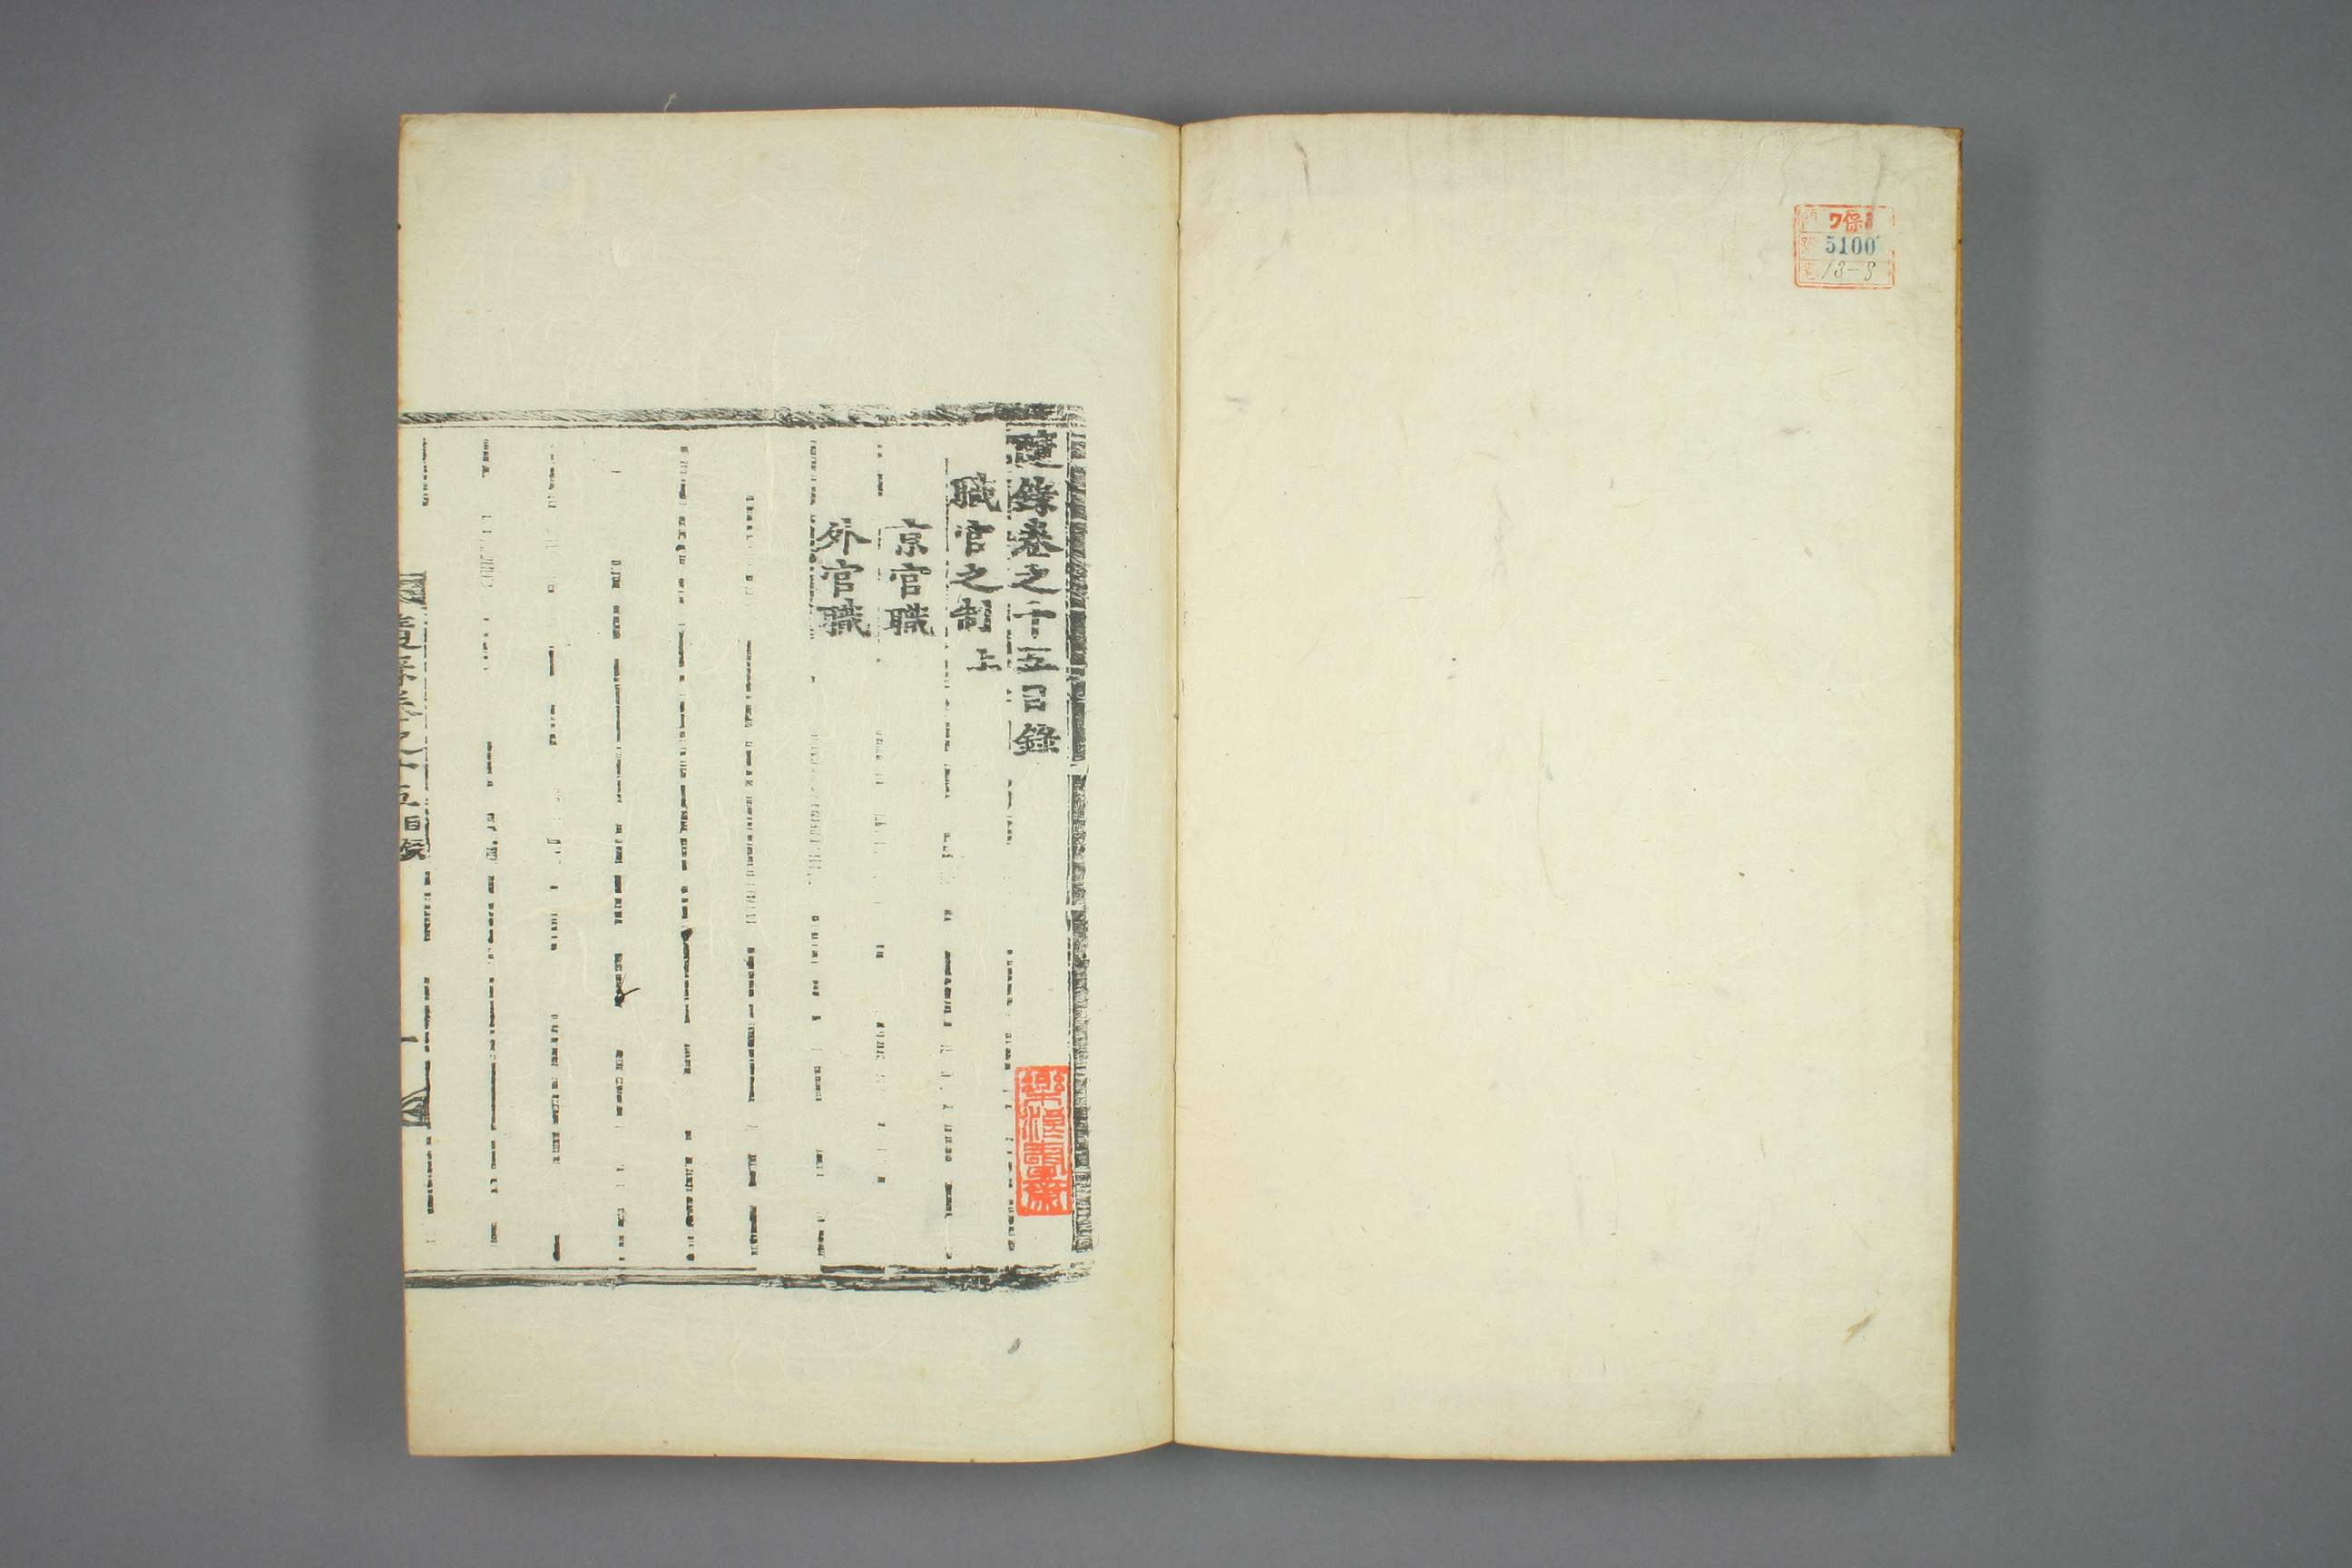 5100
13-8
隨錄卷之十五目錄
職官之制上
京官職
外官職
隨錄卷之十五目錄